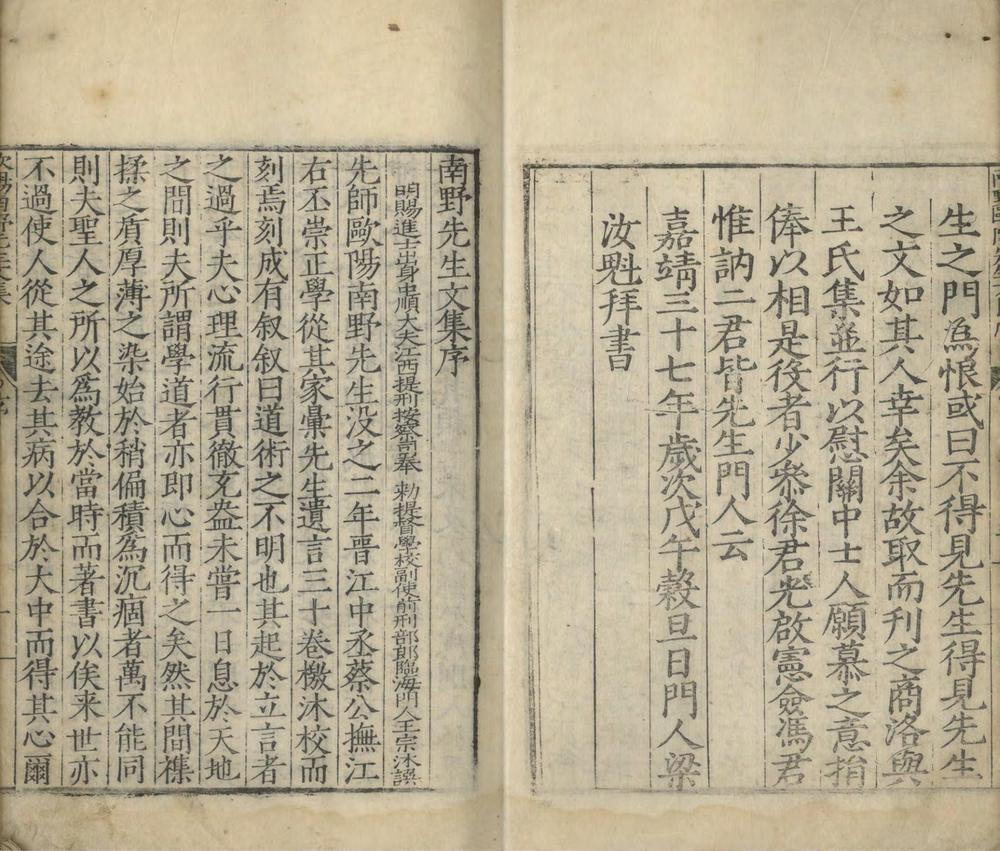 生之門爲恨或曰不得見先生得見先生
之文如其人幸矣余故取而刊之商洛與
王氏集並行以慰關中士人願慕之意捐
俸以相是役者少叅徐君光啟憲僉馮君
惟訥二君皆先生門人云
嘉靖三十七年歲次戊午穀旦日門人梁
汝魁拜書
南野先生文集序
明賜進士出身中順大夫江西提刑按察司奉 勑提督學校副使前刑部郎臨海門人王宗沐譔
先師歐陽南野先生没之二年晋江中丞蔡公撫江
右丕崇正學從其家彙先生遺言三十卷檄沐校而
刻焉刻成有叙叙曰道術之不明也其起於立言者
之過乎夫心理流行貫徹充盎未嘗一日息於天地
之間則夫所謂學道者亦即心而得之矣然其間襍
揉之質厚薄之染始於稍偏積爲沉痼者萬不能同
則夫聖人之所以爲教於當時而著書以俟来世亦
不過使人從其途去其病以合於大中而得其心爾